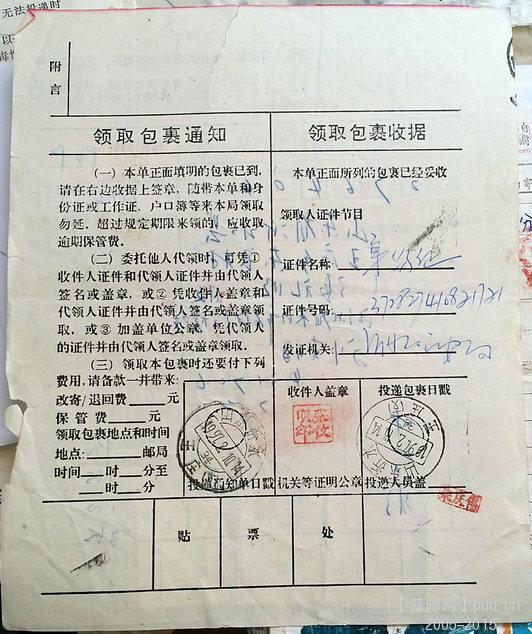 无法投递时
附
言
领取包裹通知
(一) 本单正面填明的包裹已到,
请在右边收据上签章,随带本单和身
份证或工作证、户口簿等来本局领取
勿延。超过规定期限来领的,应收取
逾期保管费。
(二) 委托他人代领时,可凭①
收件人证件和代领人证件并由代领人
签名或盖章,或② 凭收件人盖章和
代领人证件并由代领人签名或盖章领
取,或③ 加盖单位公章,凭代领人
的证件并由代领人签名或盖章领取。
(三) 领取本包裹时还要付下列
费用,请备款一并带来:
改寄/退回费____元
保 管 费____元
领取包裹地点和时间
地点:____邮局
时间____时____分至
____时____分
领取包裹收据
本单正面所列的包裹已经妥收
领取人证件节目
证件名称:
证件号码:
发证机关:
收件人盖章
投递包裹日戳
投递通知单日戳
机关等证明公章
投递人员盖
贴
票
处
【普邮网】puu.cn
2005-2015